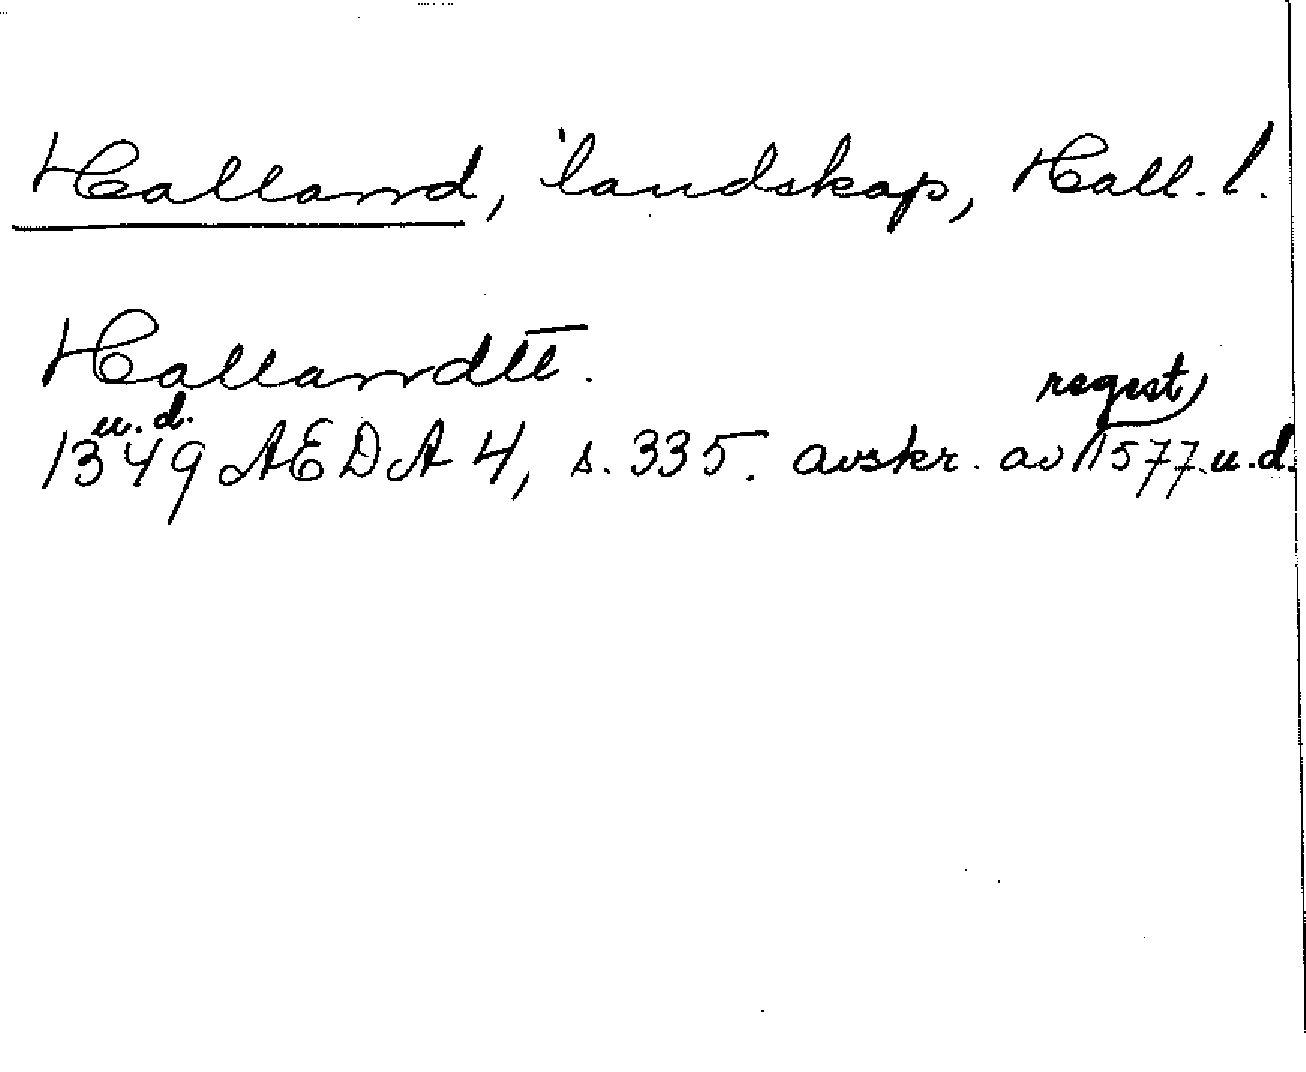 Halland, landskap, Hall. l.
Hallandtt.
regest
u. d.
1349 AEDA 4, s. 335. avskr. av 1577 u. d.